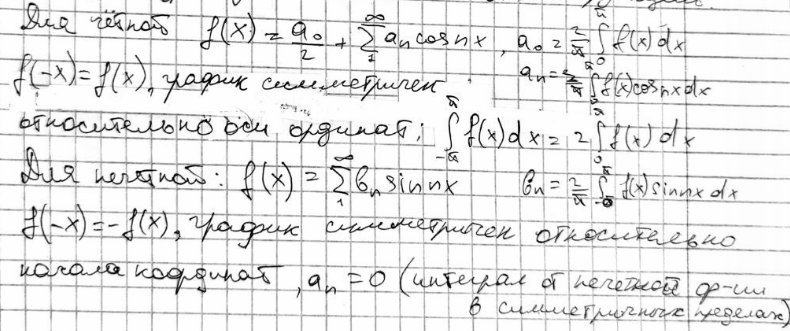 Для чётной f(x) = a₀/2 + ∑₁^∞ aₙ cos nx, a₀ = 2/π ∫₀^π f(x) dx
f(-x) = f(x), график симметричен aₙ = 2/π ∫₀^π f(x) cos nx dx
относительно оси ординат; ∫₋π^π f(x) dx = 2 ∫₀^π f(x) dx
Для нечётной: f(x) = ∑₁^∞ bₙ sin nx bₙ = 2/π ∫₀^π f(x) sin nx dx
f(-x) = -f(x), график симметричен относительно
начала координат, aₙ = 0 (интеграл от нечетной ф-ии
в симметричных пределах)